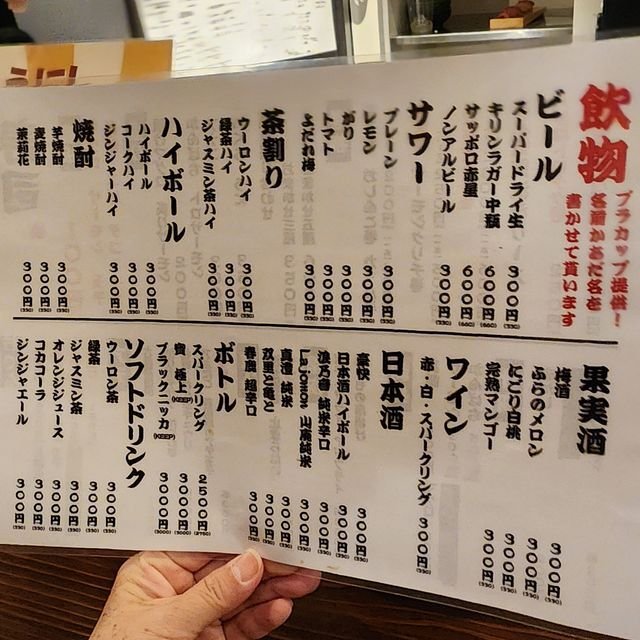 飲物
プラカップ提供!
名前かあだ名を
書かせて貰います
ビール
スーパードライ生 300円(330)
キリンラガー中瓶 600円(660)
サッポロ赤星 600円(660)
ノンアルビール 300円(330)
サワー
プレーン 300円(330)
レモン 300円(330)
がり 300円(330)
トマト 300円(330)
よだれ梅 300円(330)
茶割り
ウーロンハイ 300円(330)
緑茶ハイ 300円(330)
ジャスミン茶ハイ 300円(330)
ハイボール
ハイボール 300円(330)
コークハイ 300円(330)
ジンジャーハイ 300円(330)
焼酎
芋焼酎 300円(330)
麦焼酎 300円(330)
茉莉花 300円(330)
果実酒
梅酒 300円(330)
ふらのメロン 300円(330)
にごり白桃 300円(330)
完熟マンゴー 300円(330)
ワイン
赤・白・スパークリング 300円(330)
日本酒
豪快 300円(330)
日本酒ハイボール 300円(330)
浪乃音 純米辛口 300円(330)
山廃純米 300円(330)
真澄 純米 300円(330)
双里と竜と 300円(330)
春鹿 超辛口 300円(330)
ボトル
スパークリング 2500円(2750)
極上(KEEP) 3000円(3000)
ブラックニッカ(KEEP) 3000円(3000)
ソフトドリンク
ウーロン茶 300円(330)
緑茶 300円(330)
ジャスミン茶 300円(330)
オレンジジュース 300円(330)
コカコーラ 300円(330)
ジンジャエール 300円(330)